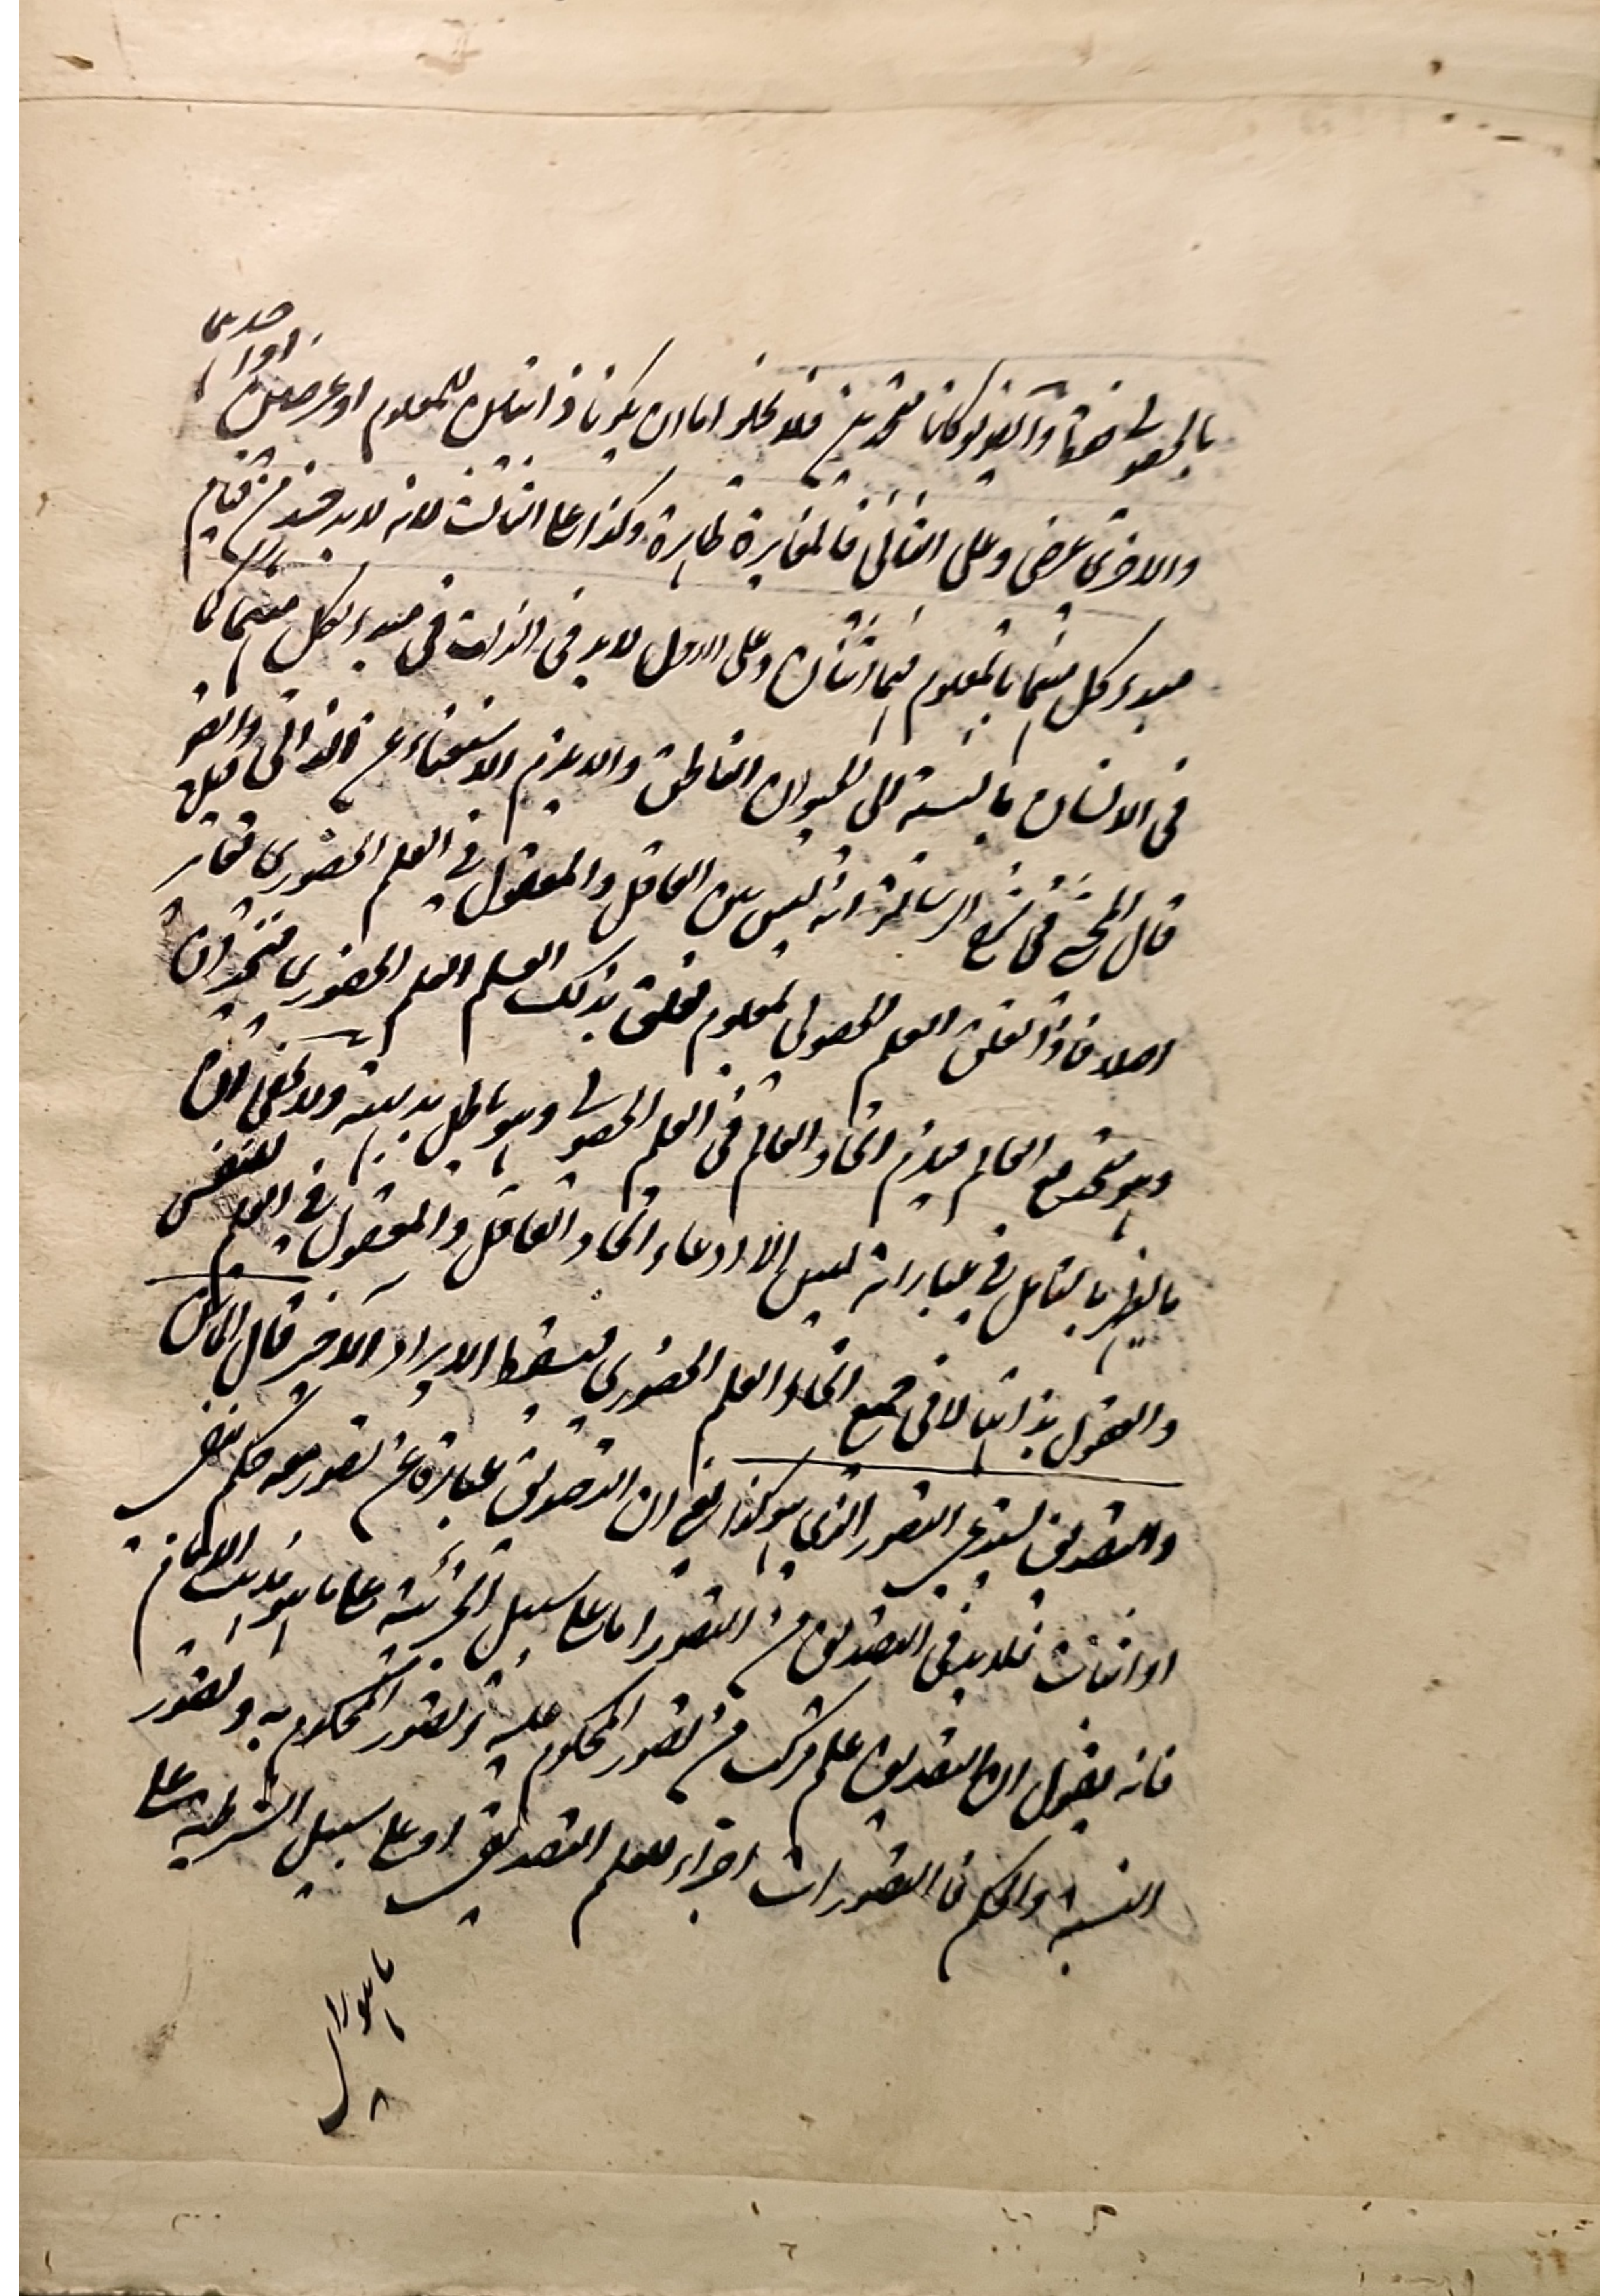 بالحصولي فتدبر وايضا لو كانا متحدين فلا يخلو اما ان يكونا ذاتيين للمعلوم او عرضيين او احدهما
والاخرى عرضي وعلى الثاني فالمغايرة ظاهرة وكذا على الثالث لانه لابد من قيام
مبدء كل منهما بالمعلوم فهما اثنان وعلى الاول لابد في الذات في مبدء لكل منهما كما
في الانسان بالنسبة الى الحيوان الناطق والا يلزم الاستغناء عن الذاتي قيل وايضا
قال المحشي في شرح الرسالة انه ليس بين العاقل والمعقول في العلم الحضوري تغاير
اصلا فاذا تعلق العلم الحصولي لمعلوم فعلق بذلك العلم العلم الحضوري متحدان
وهو متحد مع العالم فيلزم اتحاد العالم في العلم الحصولي وهو باطل بديهة ولا يخفى ان
ما يظهر بالتامل في عباراته ليس الا ادعاء اتحاد العاقل والمعقول في العلم للنفس
والعقول بذاتها لا في جميع انحاء العلم الحضوري فيسقط الايراد الاخر قال الماتن
والتصديق يستدعي التصور الذي هو كذا يعني ان التصديق عبارة عن تصور معه حكم بنفي
او اثبات فلابد في التصديق من التصور اما على سبيل الجزئية على ما هو مذهب الامام
فانه يقول ان التصديق علم مركب من تصور المحكوم عليه وتصور المحكوم به وتصور
النسبة والحكم فالتصورات اجزاء للعلم التصديقي او على سبيل الشرطية على
ما هو راي